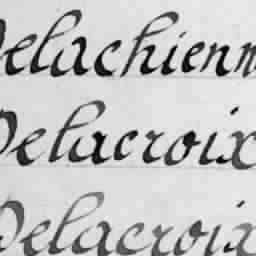 Delachienn
Delacroix
Delacroix